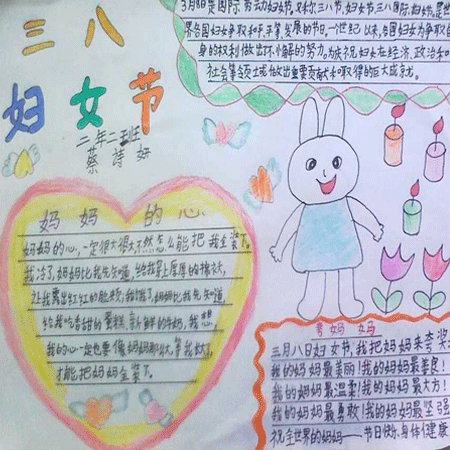 三八
妇女节
二年二班
蔡诗妍
3月8日是国际劳动妇女节,又称三八节,妇女节三八国际妇女节,是世
界各国妇女争取和平平等,发展的节日,一世纪以来,各国妇女为争取自
身的权利做出不懈的努力。为庆祝妇女在经济、政治和
社会等领域做出重要贡献和取得的巨大成就。
妈妈的心
妈妈的心,一定很大很大不然怎么能把我全装下。
我冷了,妈妈比我先知道,给我穿上厚厚的棉衣,
让我露出红红的脸颊,我饿了,妈妈比我先知道,
给我吃香甜的蛋糕,新鲜的牛奶,我想,
我的心一定也要像妈妈那样大,等我大了,
才能把妈妈全装下。
妈妈
三月八日妇女节,我把妈妈来夸奖
我的妈妈最美丽!我的妈妈最善良!
我的妈妈最温柔!我的妈妈最大方!
我的妈妈最勇敢!我的妈妈最坚强
祝全世界的妈妈——节日快乐身体健康